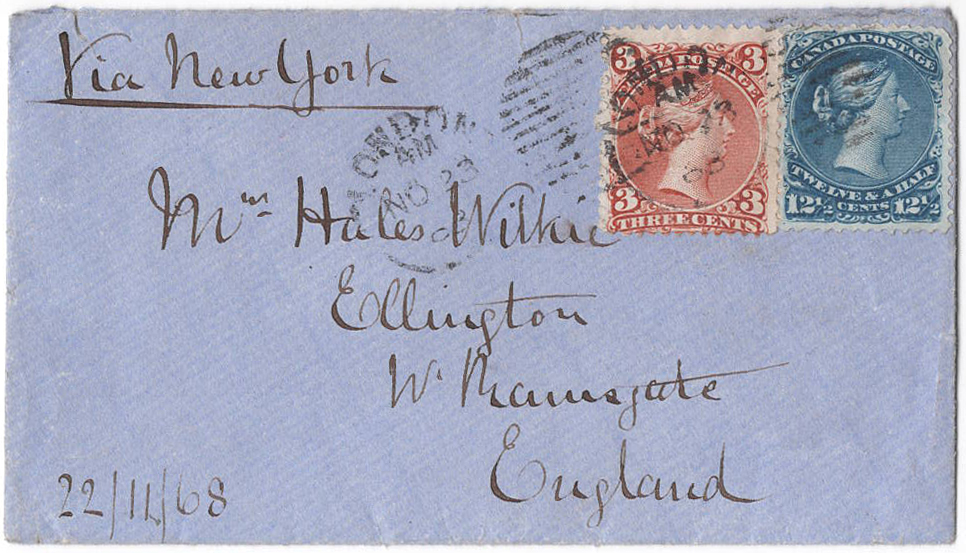 Via New York
3 3
CANADA POSTAGE
3 3
THREE CENTS
CANADA POSTAGE
TWELVE & A HALF
12½ CENTS 12½
LONDON
AM
NO 23
AM
NO 23
68
Mrs Hales Wilkie
Ellington
Nr Ramsgate
England
22/11/68